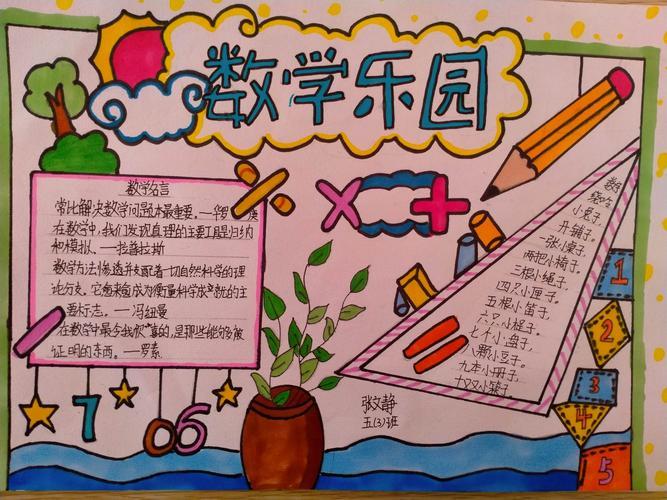 数学乐园
数学名言
常比解决数学问题本最重要。——华罗庚
在数学中,我们发现真理的主要工具是归纳
和模拟。——拉普拉斯
数学方法惨透并支配着一切自然科学的理
论分支。它愈来愈成为衡量科学成就的主
要标志。——冯纽曼
在数学中最令我欣喜的,是那些能够被
证明的东西。——罗素
7 0 6
数学
小兔子,
开铺子,
一张小桌子,
两把小椅子,
三根小绳子,
四只小匣子,
五根小笛子,
六只小棍子,
七个小盘子,
八颗小豆子,
九本小册子,
十双小筷子。
张文静
五(3)班
1
2
3
4
5